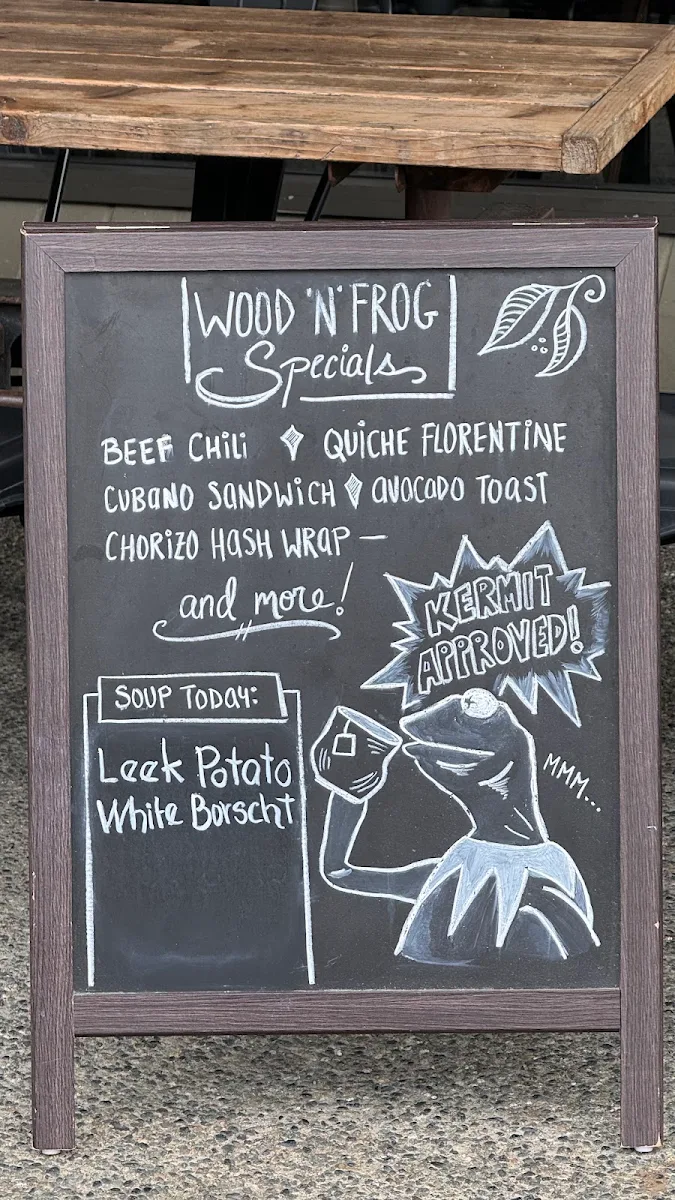 WOOD 'N' FROG
Specials
BEEF CHiLi ♦ QUICHE FLORENTiNE
CUBANO SANDWiCH ♦ AVOCADO TOAST
CHORiZO HASH WRAP —
and more!
KERMIT
APPROVED!
SOUP TODAY:
Leek Potato
White Borscht
MMM...